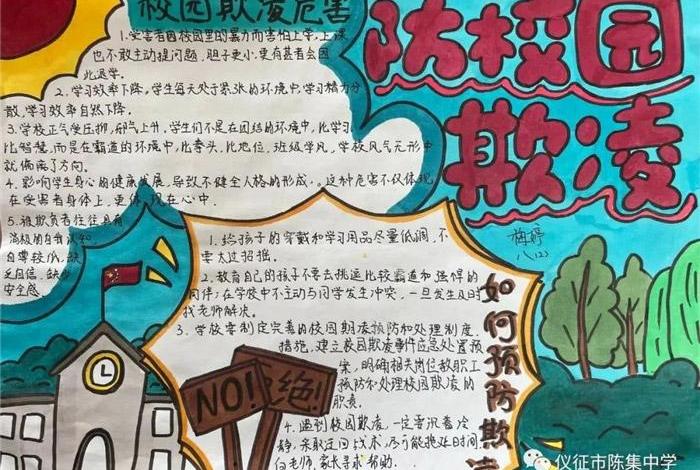 校园欺凌危害
1.受害者因校园里的暴力而害怕上学,上课
也不敢主动提问题,胆子更小,更有甚者会因
此退学。
2.学习效率下降。学生每天处于紧张的环境中,学习精力分
散,学习效率自然下降。
3.学校正气受压抑,邪气上升,学生们不是在团结的环境中,比学习
比智慧,而是在霸道的环境中,比拳头,比地位,班级学风,学校风气无形中
就偏离了方向。
4.影响学生身心的健康发展,导致不健全人格的形成。这种危害不仅体现
在受害者身体上,更体现在心中。
5.被欺负者往往具有
消极的自我认知
自尊较低,缺
乏自信,缺少
安全感。
防校园
欺凌
梅婷
八123
1.给孩子的穿戴和学习用品尽量低调,不
要太过招摇。
2.教育自己的孩子不要去挑逗比较霸道和强悍的
同伴;在学校中不主动与同学发生冲突,一旦发生及时
找老师解决。
3.学校要制定完善的校园欺凌预防和处理制度
措施,建立校园欺凌事件应急处置预
案,明确相关岗位教职工
预防和处理校园欺凌的
职责。
4.遇到校园欺凌,一定要沉着冷
静,采取迂回战术,尽可能拖延时间
向老师,家长寻求帮助。
如何预防欺凌
NO!
绝!
仪征市陈集中学